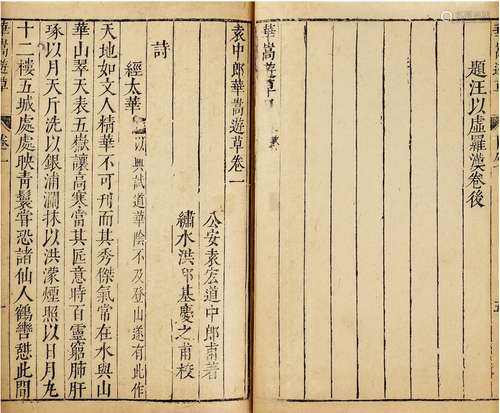 題汪以虛羅漢卷後
華嵩遊草
袁中郎華嵩遊草卷一
公安袁宏道中郎甫著
繡水洪邦基慶之甫校
詩
經太華
以典試道華陰不及登山遂有此作
天地如文人精華不可刊而其秀傑氣常在水與山
華山翠天表五嶽讓高寒當其匠意時百靈窮肺肝
琢以月天斤洗以銀浦瀾抹以洪濛煙照以日月九
十二樓五城處處映青鬟嘗恐諸仙人鶴轡愁此間
華嵩遊草
卷一